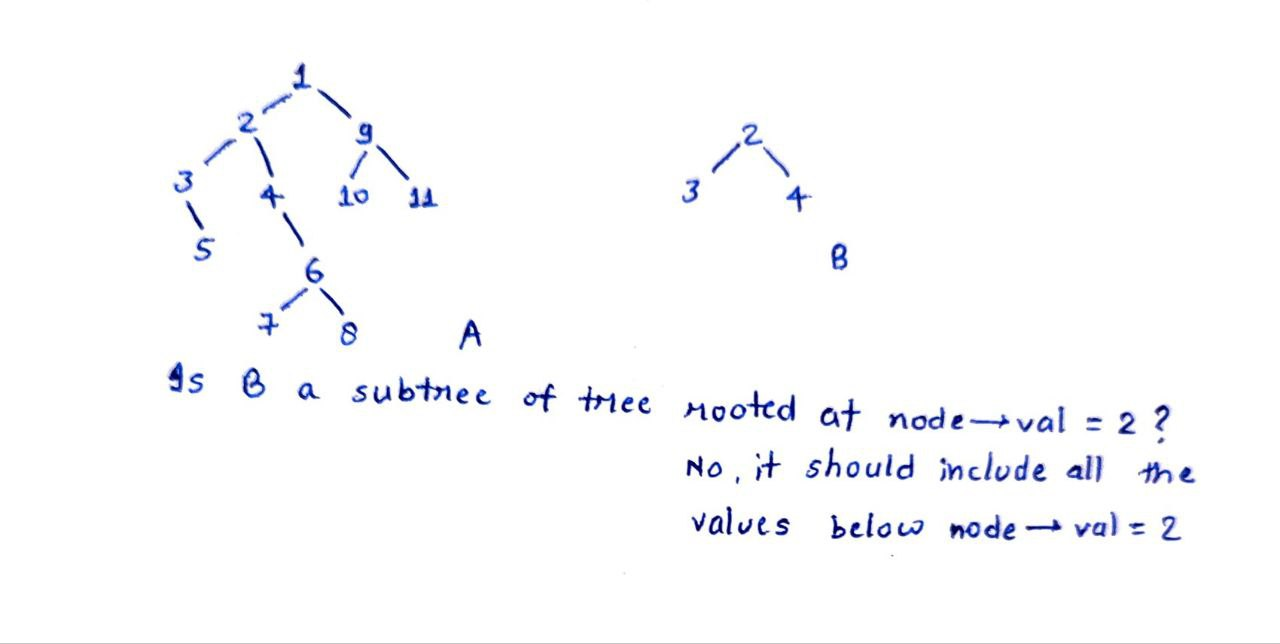 1
2 9 2
3 4 10 11 3 4
5 B
6
7 8 A
Is B a subtree of tree rooted at node→val = 2 ?
No, it should include all the
values below node → val = 2